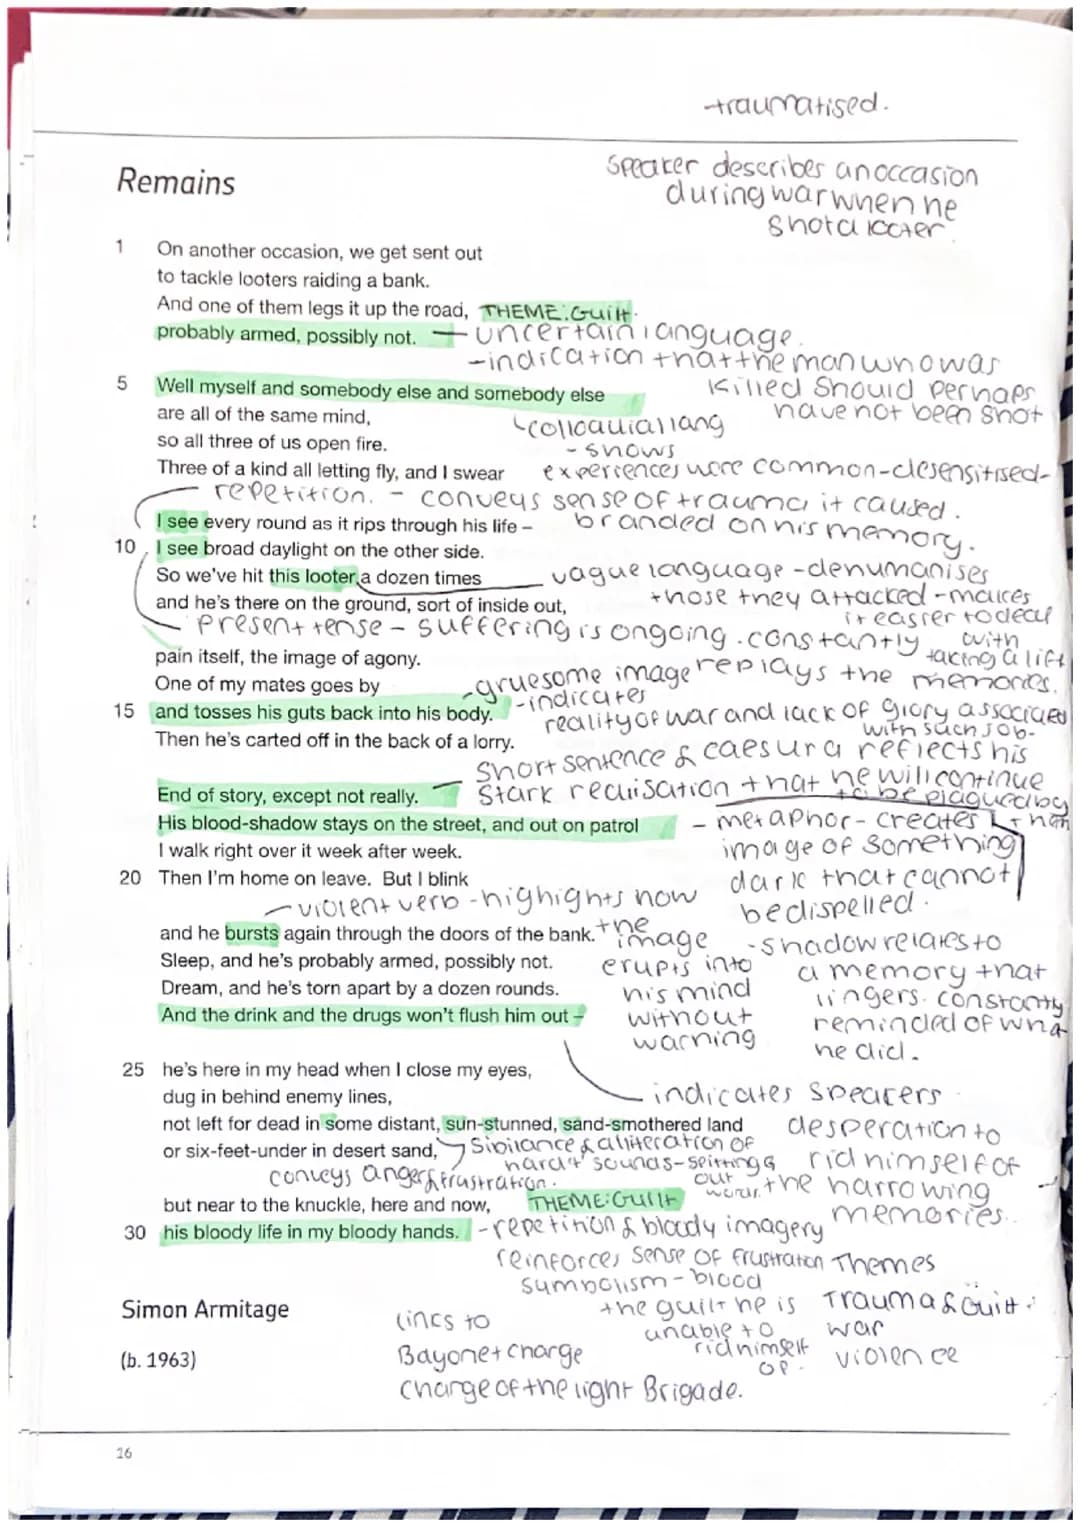 traumatised.
Remains
Speaker describes an occasion
during war when he
shot a looter.
1 On another occasion, we get sent out
to tackle looters raiding a bank.
And one of them legs it up the road, THEME: Guilt.
probably armed, possibly not. — uncertain language.
- indication that the man who was
killed should perhaps
have not been shot
5 Well myself and somebody else and somebody else
are all of the same mind,
colloquial lang
so all three of us open fire.
- shows
Three of a kind all letting fly, and I swear
experiences were common - desensitised -
repetition. - conveys sense of trauma it caused.
I see every round as it rips through his life –
branded on his memory.
10 I see broad daylight on the other side.
So we've hit this looter a dozen times
vague language - dehumanises
those they attacked - makes
it easier to deal
with
taking a life
and he's there on the ground, sort of inside out,
present tense - suffering is ongoing. constantly
replays the memories.
pain itself, the image of agony.
One of my mates goes by
- gruesome image
- indicates
15 and tosses his guts back into his body.
reality of war and lack of glory associated
with such job.
Then he's carted off in the back of a lorry.
Short sentence & caesura reflects his
stark realisation that he will continue
to be plagued by
End of story, except not really.
His blood-shadow stays on the street, and out on patrol
- metaphor - creates
image of something
dark that cannot
be dispelled.
I walk right over it week after week.
20 Then I'm home on leave. But I blink
- violent verb - highights now
the
image
erupts into
his mind
without
warning
and he bursts again through the doors of the bank.
- shadow relates to
a memory that
lingers. constantly
reminded of wha
he did.
Sleep, and he's probably armed, possibly not.
Dream, and he's torn apart by a dozen rounds.
And the drink and the drugs won't flush him out –
indicates speakers
desperation to
rid himself of
the harrowing
memories.
25 he's here in my head when I close my eyes,
dug in behind enemy lines,
not left for dead in some distant, sun-stunned, sand-smothered land
or six-feet-under in desert sand,
Sibilance & alliteration of
hard 't' sounds - spitting
out
words.
conveys anger & frustration.
but near to the knuckle, here and now,
THEME: Guilt
30 his bloody life in my bloody hands.
- repetition & bloody imagery
reinforces sense of frustration
symbolism - blood
the guilt he is
unable to
rid himself
of.
Themes
Trauma & Guilt
war
violence
Simon Armitage
(b. 1963)
Lincs to
Bayonet charge
Charge of the light Brigade.
16